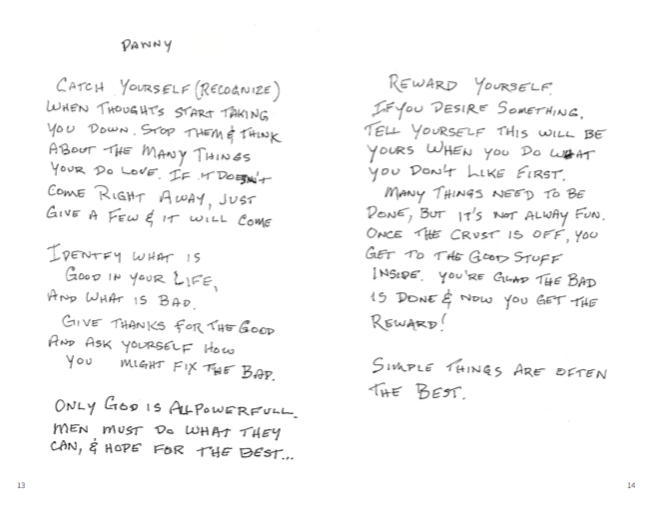 DANNY
CATCH YOURSELF (RECOGNIZE)
WHEN THOUGHTS START TAKING
YOU DOWN. STOP THEM & THINK
ABOUT THE MANY THINGS
YOUR DO LOVE. IF IT DOESN'T
COME RIGHT AWAY, JUST
GIVE A FEW & IT WILL COME
IDENTFY WHAT IS
GOOD IN YOUR LIFE,
AND WHAT IS BAD.
GIVE THANKS FOR THE GOOD
AND ASK YOURSELF HOW
YOU MIGHT FIX THE BAD.
ONLY GOD IS ALLPOWERFULL.
MEN MUST DO WHAT THEY
CAN, & HOPE FOR THE BEST...
13
REWARD YOURSELF.
IF YOU DESIRE SOMETHING,
TELL YOURSELF THIS WILL BE
YOURS WHEN YOU DO WHAT
YOU DON'T LIKE FIRST.
MANY THINGS NEED TO BE
DONE, BUT IT'S NOT ALWAY FUN.
ONCE THE CRUST IS OFF, YOU
GET TO THE GOOD STUFF
INSIDE. YOU'RE GLAD THE BAD
IS DONE & NOW YOU GET THE
REWARD!
SIMPLE THINGS ARE OFTEN
THE BEST.
14